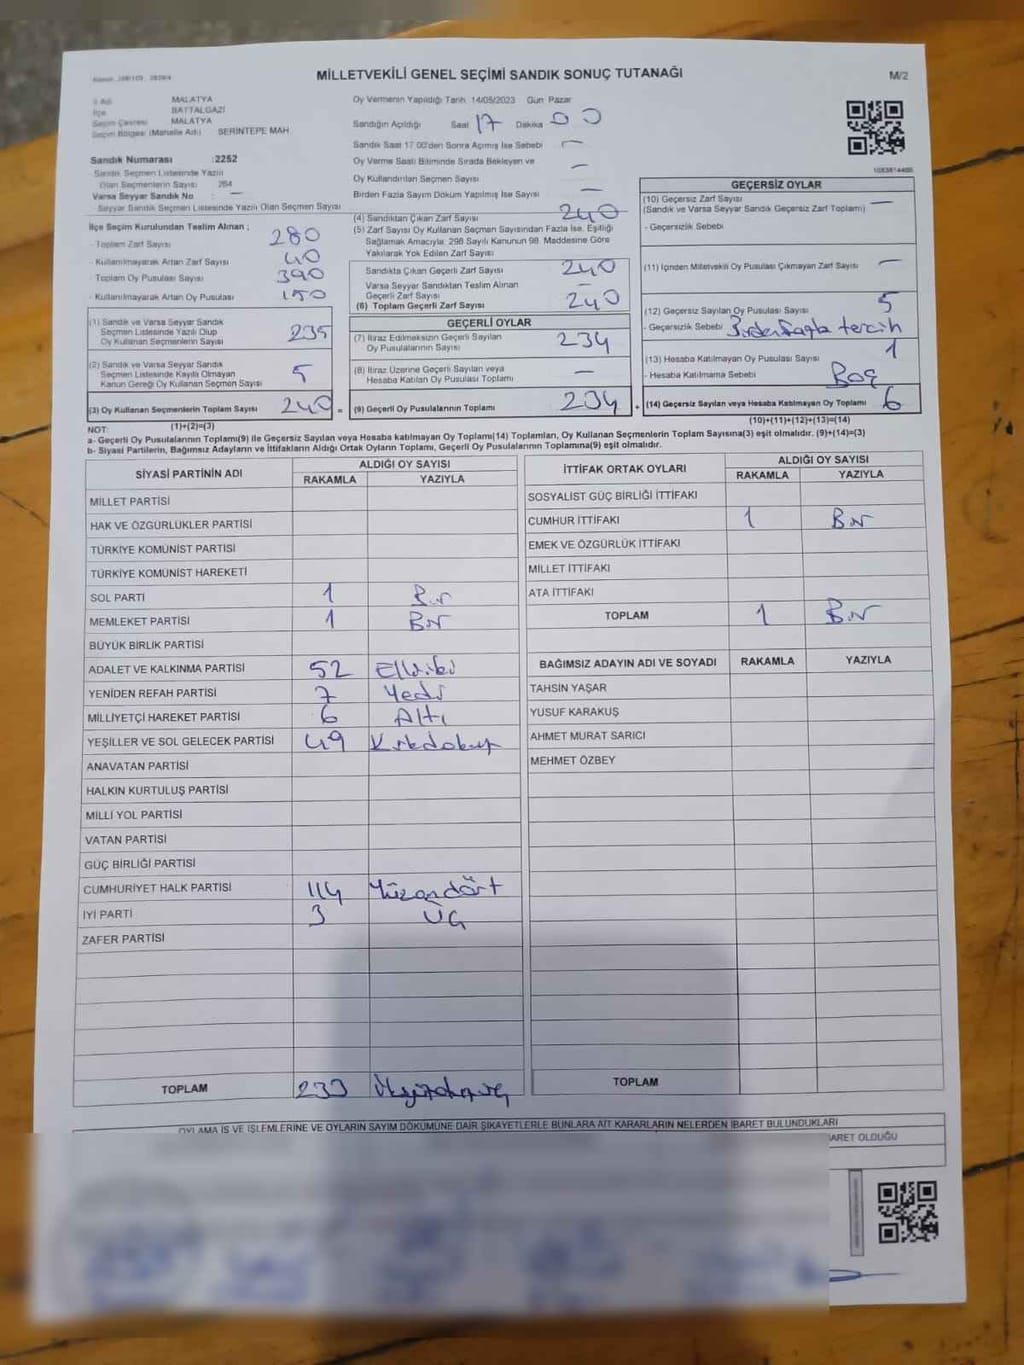 MİLLETVEKİLİ GENEL SEÇİMİ SANDIK SONUÇ TUTANAĞI
M/2
İl Adı MALATYA
İlçe BATTALGAZİ
Seçim Çevresi MALATYA
Seçim Bölgesi (Mahalle Adı) SERİNTEPE MAH.
Sandık Numarası :2252
Sandık Seçmen Listesinde Yazılı
Olan Seçmenlerin Sayısı 264
Varsa Seyyar Sandık No —
Seyyar Sandık Seçmen Listesinde Yazılı Olan Seçmen Sayısı
İlçe Seçim Kurulundan Teslim Alınan ;
- Toplam Zarf Sayısı 280
- Kullanılmayarak Artan Zarf Sayısı 40
- Toplam Oy Pusulası Sayısı 390
- Kullanılmayarak Artan Oy Pusulası 150
(1) Sandık ve Varsa Seyyar Sandık
Seçmen Listesinde Yazılı Olup
Oy Kullanan Seçmenlerin Sayısı 235
(2) Sandık ve Varsa Seyyar Sandık
Seçmen Listesinde Kayıtlı Olmayan
Kanun Gereği Oy Kullanan Seçmen Sayısı 5
(3) Oy Kullanan Seçmenlerin Toplam Sayısı 240 =
(1)+(2)=(3)
Oy Vermenin Yapıldığı Tarih 14/05/2023 Gün Pazar
Sandığın Açıldığı Saat 17 Dakika 00
Sandık Saat 17.00'den Sonra Açılmış İse Sebebi —
Oy Verme Saati Bitiminde Sırada Bekleyen ve
Oy Kullandırılan Seçmen Sayısı —
Birden Fazla Sayım Döküm Yapılmış İse Sayısı —
(4) Sandıktan Çıkan Zarf Sayısı 240
(5) Zarf Sayısı Oy Kullanan Seçmen Sayısından Fazla İse, Eşitliği
Sağlamak Amacıyla; 298 Sayılı Kanunun 98. Maddesine Göre
Yakılarak Yok Edilen Zarf Sayısı
Sandıkta Çıkan Geçerli Zarf Sayısı 240
Varsa Seyyar Sandıktan Teslim Alınan
Geçerli Zarf Sayısı —
(6) Toplam Geçerli Zarf Sayısı 240
GEÇERLİ OYLAR
(7) İtiraz Edilmeksizin Geçerli Sayılan
Oy Pusulalarının Sayısı 234
(8) İtiraz Üzerine Geçerli Sayılan ve
Hesaba Katılan Oy Pusulası Toplamı —
(9) Geçerli Oy Pusulalarının Toplamı 234 +
GEÇERSİZ OYLAR
(10) Geçersiz Zarf Sayısı —
(Sandık ve Varsa Seyyar Sandık Geçersiz Zarf Toplamı)
- Geçersizlik Sebebi
(11) İçinden Milletvekili Oy Pusulası Çıkmayan Zarf Sayısı —
(12) Geçersiz Sayılan Oy Pusulası Sayısı 5
- Geçersizlik Sebebi Birden fazla tercih
(13) Hesaba Katılmayan Oy Pusulası Sayısı 1
- Hesaba Katılmama Sebebi Boş
(14) Geçersiz Sayılan veya Hesaba Katılmayan Oy Toplamı 6
(10)+(11)+(12)+(13)=(14)
NOT:
a- Geçerli Oy Pusulalarının Toplamı(9) ile Geçersiz Sayılan veya Hesaba katılmayan Oy Toplamı(14) Toplamları, Oy Kullanan Seçmenlerin Toplam Sayısına(3) eşit olmalıdır. (9)+(14)=(3)
b- Siyasi Partilerin, Bağımsız Adayların ve İttifakların Aldığı Ortak Oyların Toplamı, Geçerli Oy Pusulalarının Toplamına(9) eşit olmalıdır.
SİYASİ PARTİNİN ADI ALDIĞI OY SAYISI
RAKAMLA YAZIYLA
MİLLET PARTİSİ
HAK VE ÖZGÜRLÜKLER PARTİSİ
TÜRKİYE KOMÜNİST PARTİSİ
TÜRKİYE KOMÜNİST HAREKETİ
SOL PARTİ 1 Bir
MEMLEKET PARTİSİ 1 Bir
BÜYÜK BİRLİK PARTİSİ
ADALET VE KALKINMA PARTİSİ 52 Elliiki
YENİDEN REFAH PARTİSİ 7 Yedi
MİLLİYETÇİ HAREKET PARTİSİ 6 Altı
YEŞİLLER VE SOL GELECEK PARTİSİ 49 Kırkdokuz
ANAVATAN PARTİSİ
HALKIN KURTULUŞ PARTİSİ
MİLLİ YOL PARTİSİ
VATAN PARTİSİ
GÜÇ BİRLİĞİ PARTİSİ
CUMHURİYET HALK PARTİSİ 114 Yüzondört
İYİ PARTİ 3 Üç
ZAFER PARTİSİ
TOPLAM 233 İkiyüzotuzüç
İTTİFAK ORTAK OYLARI ALDIĞI OY SAYISI
RAKAMLA YAZIYLA
SOSYALİST GÜÇ BİRLİĞİ İTTİFAKI
CUMHUR İTTİFAKI 1 Bir
EMEK VE ÖZGÜRLÜK İTTİFAKI
MİLLET İTTİFAKI
ATA İTTİFAKI
TOPLAM 1 Bir
BAĞIMSIZ ADAYIN ADI VE SOYADI RAKAMLA YAZIYLA
TAHSİN YAŞAR
YUSUF KARAKUŞ
AHMET MURAT SARICI
MEHMET ÖZBEY
TOPLAM
OYLAMA İŞ VE İŞLEMLERİNE VE OYLARIN SAYIM DÖKÜMÜNE DAİR ŞİKAYETLERLE BUNLARA AİT KARARLARIN NELERDEN İBARET BULUNDUKLARI
BARET OLDUĞU